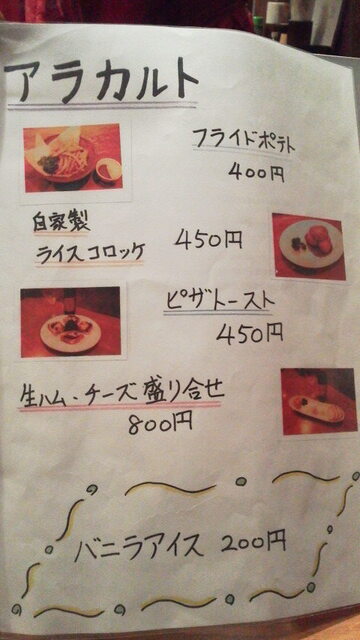 アラカルト
フライドポテト
400円
自家製
ライスコロッケ 450円
ピザトースト
450円
生ハム・チーズ盛り合せ
800円
バニラアイス 200円